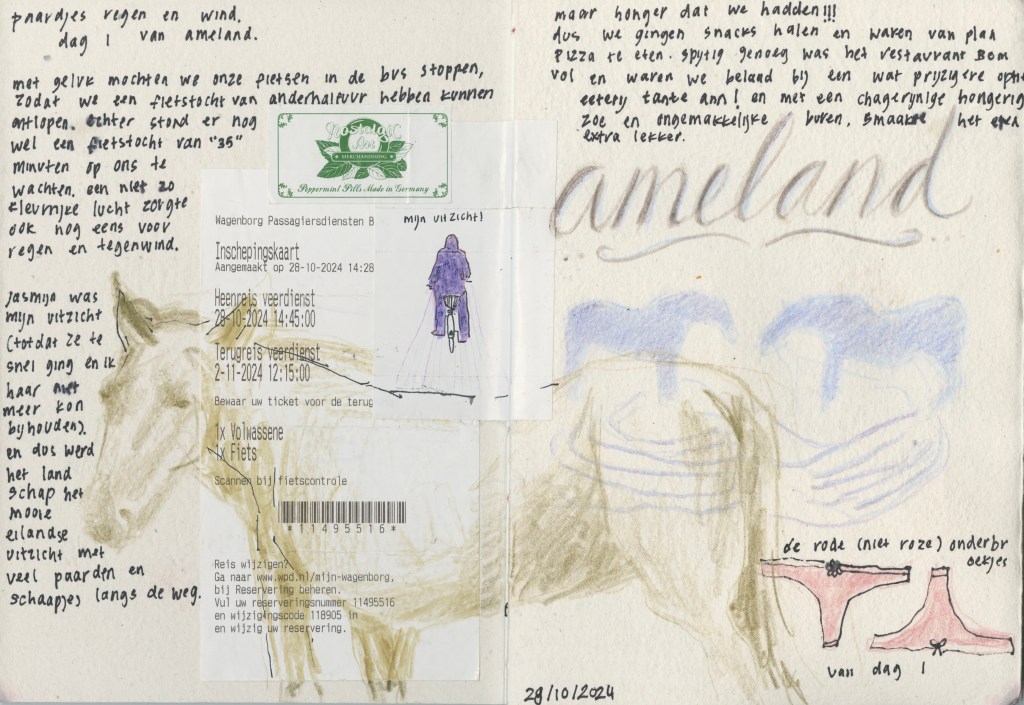 paardjes regen en wind.
dag 1 van ameland.
met geluk mochten we onze fietsen in de bus stoppen,
zodat we een fietstocht van anderhalf uur hebben kunnen
ontlopen. echter stond er nog
wel een fietstocht van "35"
minuten op ons te
wachten. een niet zo
kleurrijke lucht zorgte
ook nog eens voor
regen en tegenwind.
jasmijn was
mijn uitzicht
(totdat ze te
snel ging en ik
haar niet
meer kon
bijhouden).
en dus werd
het land
schap het
mooie
eilandse
uitzicht met
veel paarden en
schaapjes langs de weg.
Nostalgic
Art
MERCHANDISING
Peppermint Pills Made in Germany
Wagenborg Passagiersdiensten B
Inschepingskaart
Aangemaakt op 28-10-2024 14:28
Heenreis veerdienst
28-10-2024 14:45:00
Terugreis veerdienst
2-11-2024 12:15:00
Bewaar uw ticket voor de terug
1x Volwassene
1x Fiets
Scannen bij fietscontrole
*11495516*
Reis wijzigen?
Ga naar www.wpd.nl/mijn-wagenborg,
bij Reservering beheren.
Vul uw reserveringsnummer 11495516
en wijzigingscode 118905 in
en wijzig uw reservering.
mijn uitzicht!
maar honger dat we hadden!!!
dus we gingen snacks halen en waren van plan
pizza te eten. spijtig genoeg was het restaurant Bom
vol en waren we beland bij een wat prijzigere
eetery tante ann! en met een chagerijnige hongerig
zoe en ongemakkelijke buren. smaakte het
extra lekker.
ameland
de rode (niet roze) onderbr
oekjes
van dag 1
28/10/2024